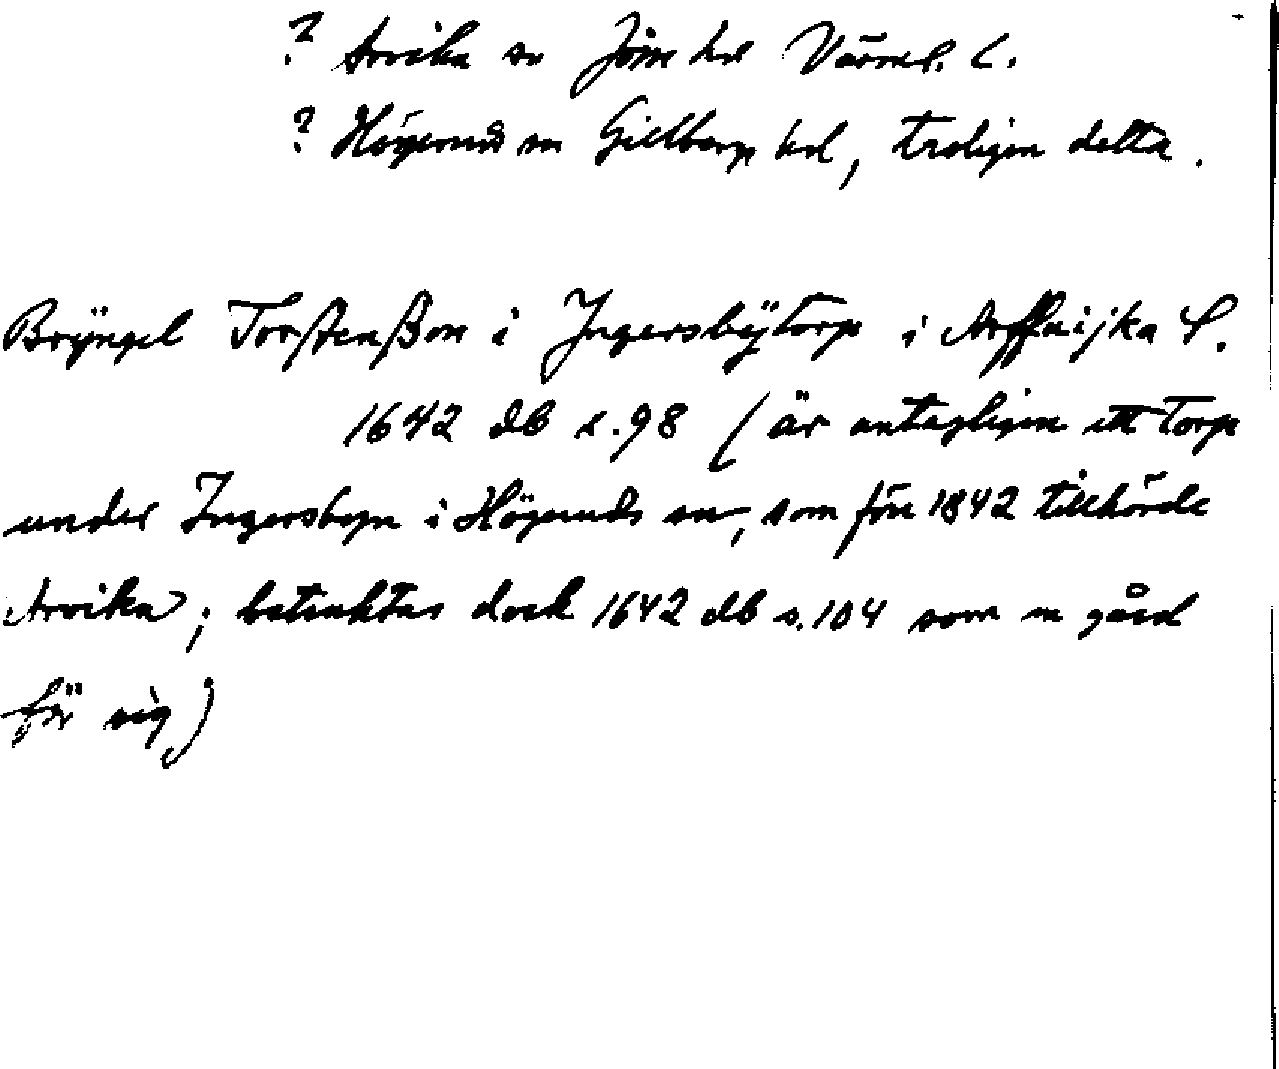 ? Arvika sn Jösse hd Värml. l.
? Högerud sn Gillberg hd, troligen detta.
Brÿngel Torstenßon i Jngersbÿtorp i Arffuijka S.
1642 db s. 98 (är antagligen ett torp
under Ingersbyn i Högeruds sn, som före 1842 tillhörde
Arvika; betraktas dock 1642 db s. 104 som en gård
för sig)